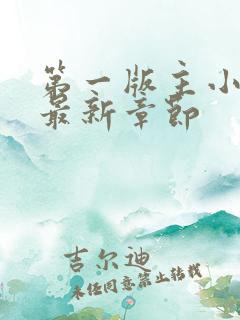 第一版主小
最新章节
吉尔迪
未经同意禁止转载